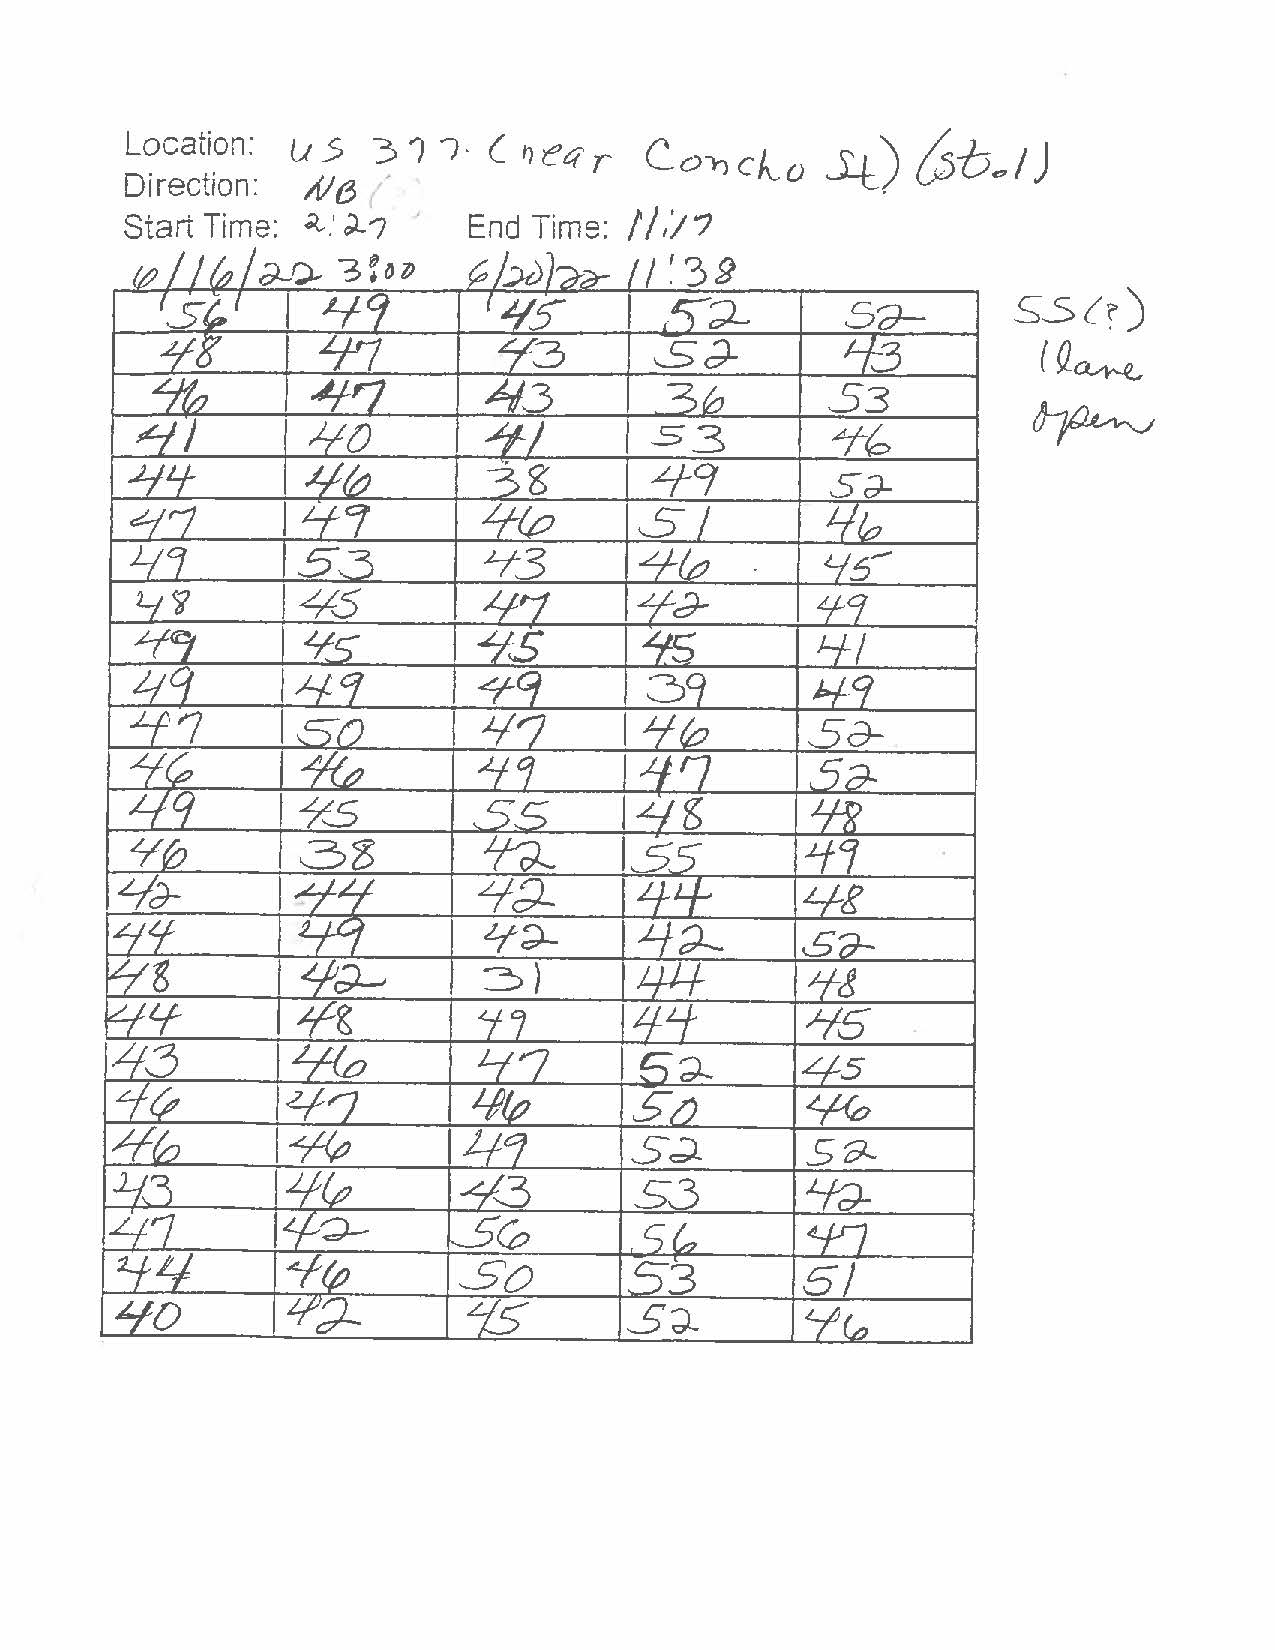 Location: US 377. (near Concho St) (sta. 1)
Direction: NB
Start Time: 2:27 End Time: 11:17
6/16/22 3:00 6/20/22 11:38
56 49 45 52 52 SS(?)
48 47 43 52 43 1 lane
46 47 43 36 53 open
41 40 41 53 46
44 46 38 49 52
47 49 46 51 46
49 53 43 46 45
48 45 47 42 49
49 45 45 45 41
49 49 49 39 49
47 50 47 46 52
46 46 49 47 52
49 45 55 48 48
46 38 42 55 49
42 44 42 44 48
44 49 42 42 52
48 42 31 44 48
44 48 49 44 45
43 46 47 52 45
46 47 46 50 46
46 46 49 52 52
43 46 43 53 42
47 42 56 56 47
44 46 50 53 51
40 42 45 52 46